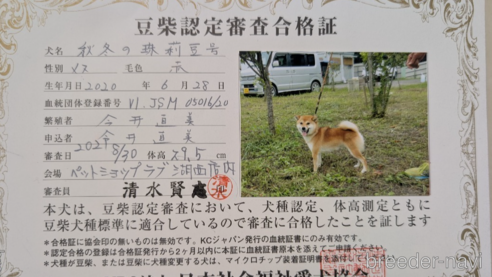 豆柴認定審査合格証
犬名 秋冬の茉莉豆号
性別 メス 毛色 赤
生年月日 2020 年 6 月 28 日
血統団体登録番号 VI.JSM 05016/20
繁殖者 今井直美
申込者 今井直美
審査日 2021 8/30 体高 29.5 cm
会場 ペットショップラブ湖西店内
審査員 清水賢
本犬は、豆柴認定審査において、犬種認定、体高測定ともに
豆柴犬種標準に適合しているので審査に合格したことを証します
*合格証に協会印の無いものは無効です。KCジャパン発行の血統証書にのみ有効です。
*認定合格の登録は合格証発行から2ヶ月以内に本証に血統証書原本を添えてご申請ください。
*犬種が豆柴、または豆柴に犬種変更する犬は、マイクロチップ装着証明書を添付して
日本社会福祉愛犬協会
breeder-navi